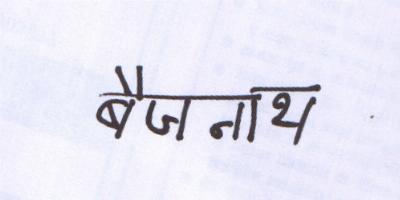 बैजनाथ